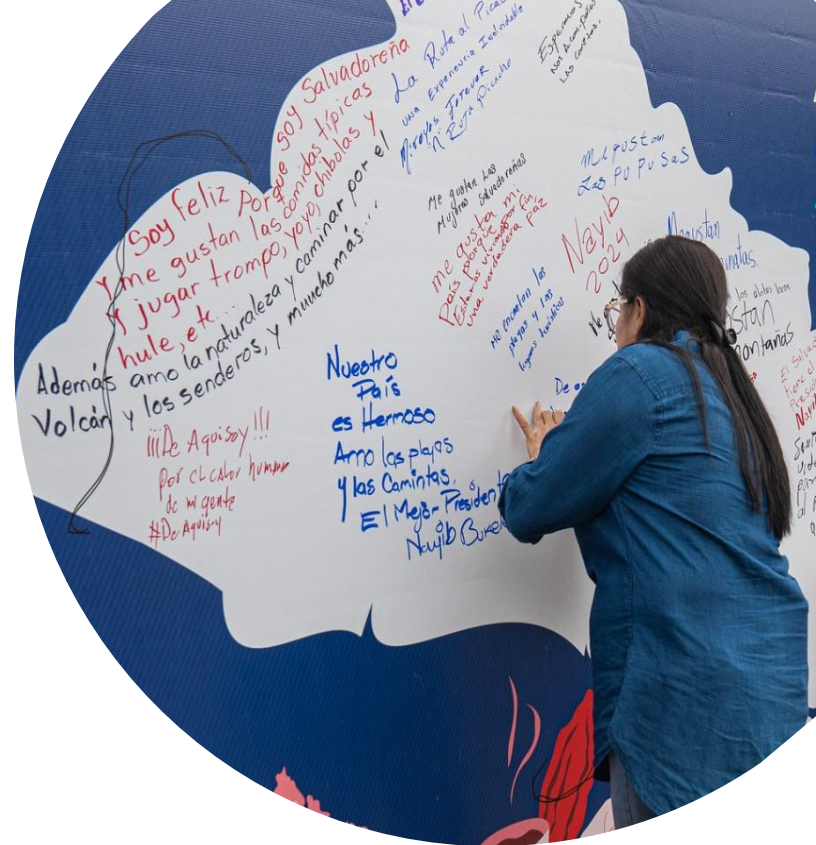 Soy feliz Porque soy Salvadoreña
y me gustan las comidas típicas
y jugar trompo, yoyo, chibolas y
hule, etc...
Además amo la naturaleza y caminar por el
Volcán y los senderos, y muucho más...
¡¡¡De Aquisoy!!!
Por el calor humano
de mi gente
#DeAquisoy
La Ruta al Picacho
una Experiencia Inolvidable
Forever
Ruta Picacho
Esperamos
Nos Acompañen
Las
Me gustan Las
Mujeres Salvadoreñas
me gusta mi
País porque
Estamos viviendo por fin
una verdadera paz
Me gustan
Las PUPUSAS
Nayib
2024
Me encantan las
playas y los
lugares turísticos
Nuestro
País
es Hermoso
Amo las playas
y las Camintas.
El Mejor President
Nayib Buke
De
Me gustan
minatas.
los
stan
ontañas
El Salvad
tiene el
Nayi